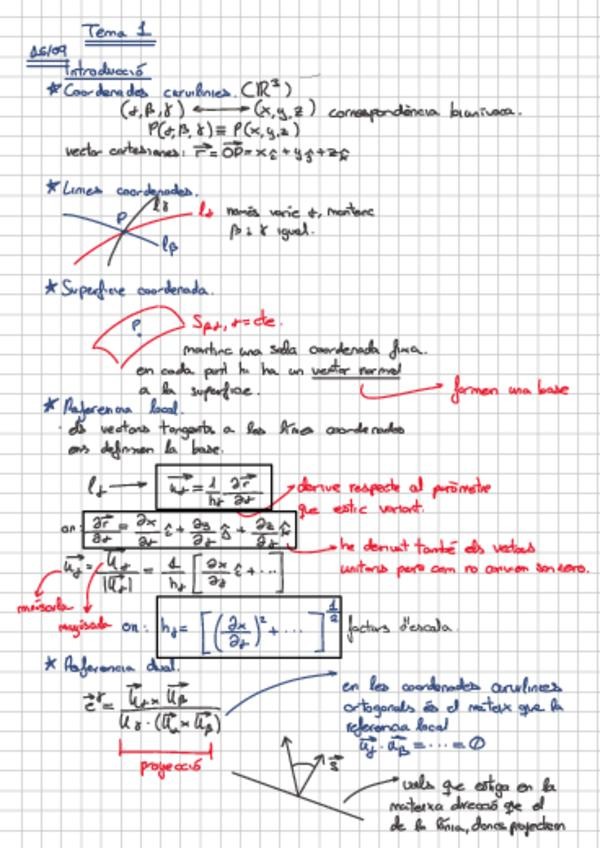 Tema 1
15/09
Introducció
* Coordenades curvilínies. (ℝ³)
(α, β, γ) ⟷ (x, y, z) correspondència biunívoca.
P(α, β, γ) ≡ P(x, y, z)
vector cartesianes: r⃗ = OP⃗ = x î + y ĵ + z k̂
* Línies coordenades.
lγ
P
lα només varie α, mantenc
β i γ igual.
lβ
* Superfície coordenada.
P.
Sβγ, α = cte.
mantinc una sola coordenada fixa.
en cada punt hi ha un vector normal
a la superfície.
formen una base
* Referència local.
· els vectors tangents a les línies coordenades
ens defineixen la base.
lα ⟶ uα⃗ = 1/hα ∂r⃗/∂α
derive respecte al paràmetre
que estic variant.
on: ∂r⃗/∂α = ∂x/∂α î + ∂y/∂α ĵ + ∂z/∂α k̂
he derivat també els vectors
unitaris però com no canvien son zero.
uα⃗ = Uα⃗/|Uα⃗| = 1/hα [∂x/∂α î + ...]
minúscula
majúscula
on: hα = [(∂x/∂α)² + ...]^(1/2) factors d'escala.
* Referència dual.
e⃗^γ = Uα⃗ × Uβ⃗ / Uγ · (Uα⃗ × Uβ⃗)
projecció
en les coordenades curvilínies
ortogonals és el mateix que la
referència local
uα⃗ · uβ⃗ = ... = 0
vols que estiga en la
mateixa direcció que el
de la línia, doncs projectem